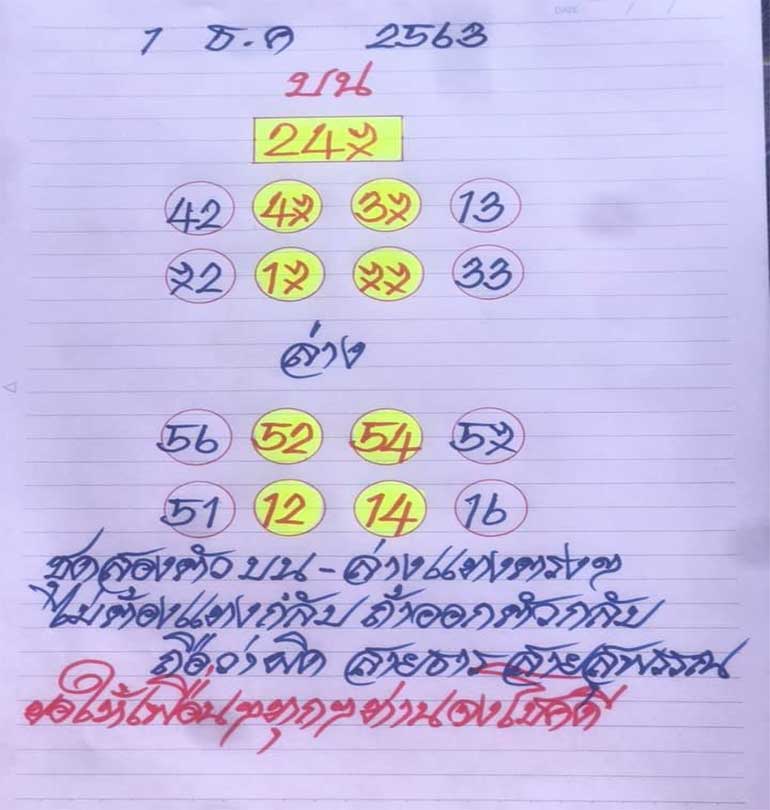 1 ธ.ค 2563
บน
247
42 47 37 13
72 17 77 33
ล่าง
56 52 54 57
51 12 14 16
ชุดสองตัว บน - ล่างแทงตรงๆ
ไม่ต้องแทงกลับ ถ้าออกตัวกลับ
ถือว่าผิด สายธาร สายสุพรรณ
ขอให้เพื่อนๆทุกๆท่านจงโชคดี